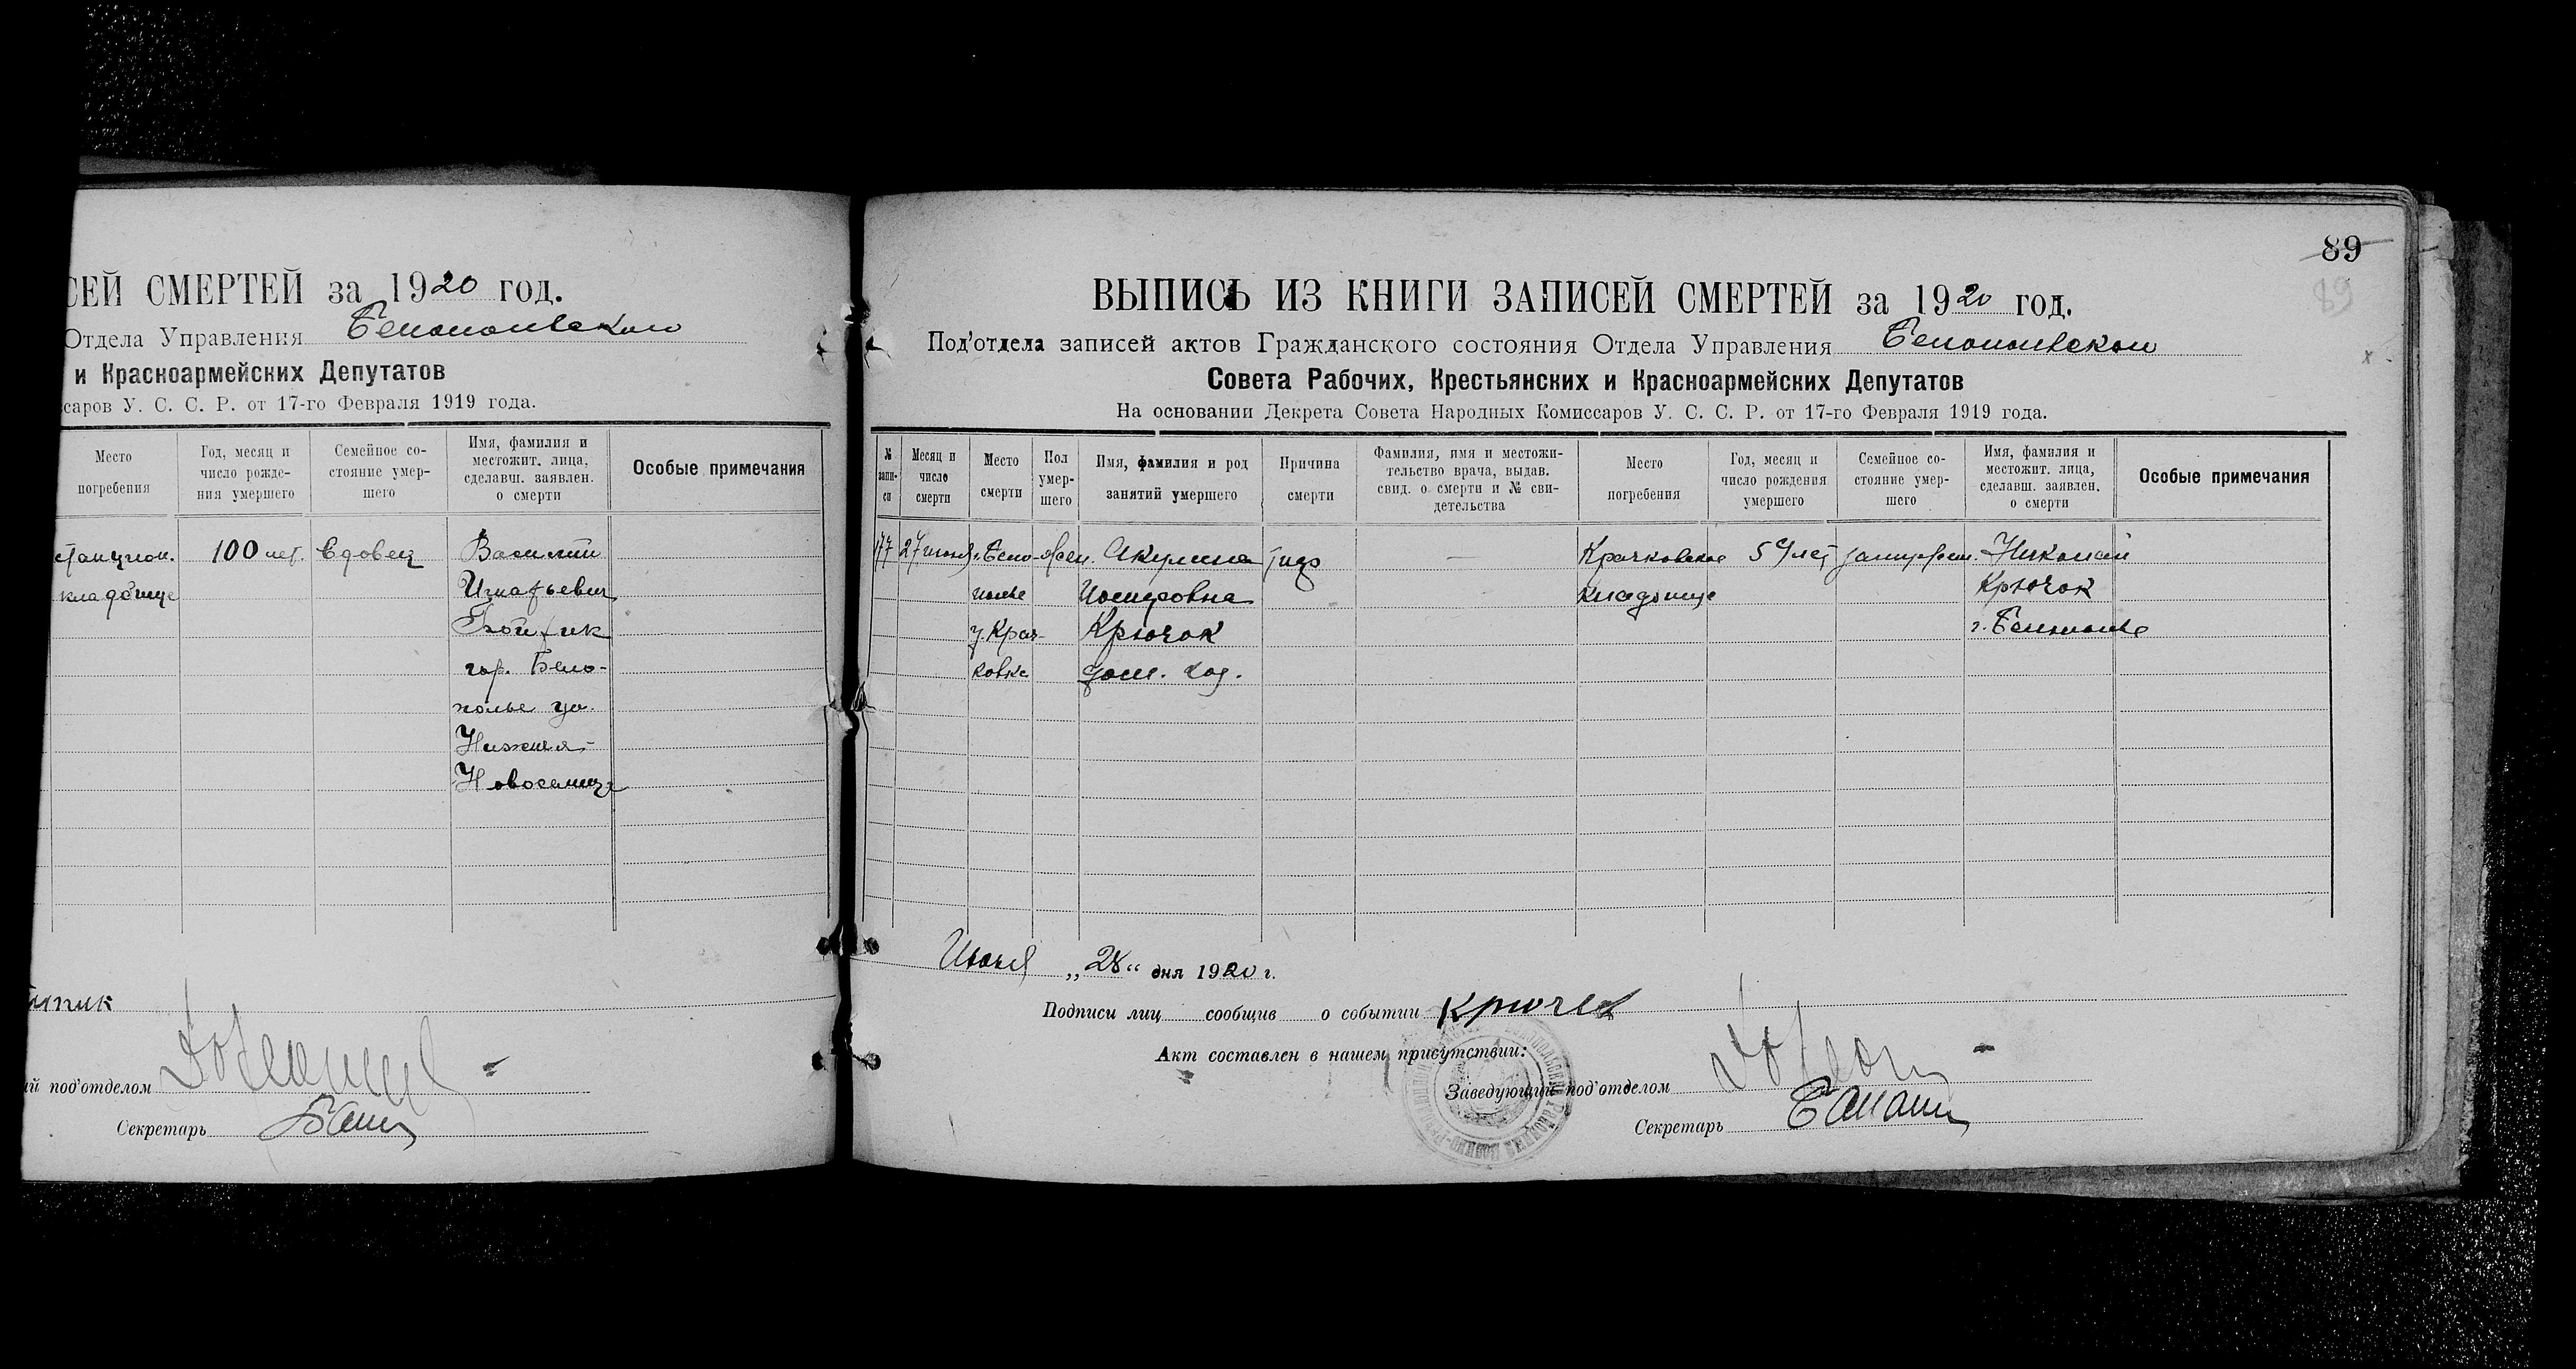 СЕЙ СМЕРТЕЙ за 1920 год.
Отдела Управления Белопольского
и Красноармейских Депутатов
ссаров У. С. С. Р. от 17-го Февраля 1919 года.
Место погребения
Год, месяц и число рожде- ния умершего
Семейное со- стояние умер- шего
Имя, фамилия и местожит. лица, сделавш. заявлен. о смерти
Особые примечания
станцион. 100 лет. Вдовец Василий
кладбище Игнатьевич
гор. Бело-
полье ул.
Нижняя-
Новоселица
ий под'отделом
Секретарь
89
89
ВЫПИСЬ ИЗ КНИГИ ЗАПИСЕЙ СМЕРТЕЙ за 1920 год.
Под'отдела записей актов Гражданского состояния Отдела Управления Белопольского
Совета Рабочих, Крестьянских и Красноармейских Депутатов
На основании Декрета Совета Народных Комиссаров У. С. С. Р. от 17-го Февраля 1919 года.
№ запи- си
Месяц и число смерти
Место смерти
Пол умер- шего
Имя, фамилия и род занятий умершего
Причина смерти
Фамилия, имя и местожи- тельство врача, выдав. свид. о смерти и № сви- детельства
Место погребения
Год, месяц и число рождения умершего
Семейное со- стояние умер- шего
Имя, фамилия и местожит. лица, сделавш. заявлен. о смерти
Особые примечания
177 27 июня Бело- жен. Акулина тиф — Крачковское лет замужем. Николай
полье Иосифовна кладбище Крючок
у. Крач- Крючок г. Белополье
ковка дом. хоз.
Июня „28“ дня 1920 г.
Подписи лиц сообщив о событии Крючок
Акт составлен в нашем присутствии:
Заведующий под'отделом
Секретарь